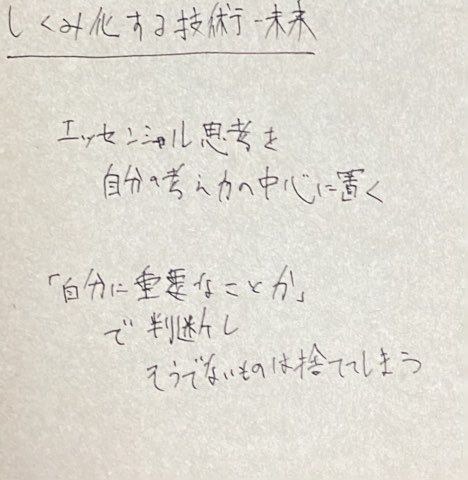 しくみ化する技術-未来
エッセンシャル思考を
自分の考え方の中心に置く
「自分に重要なことか」
で判断し
そうでないものは捨ててしまう